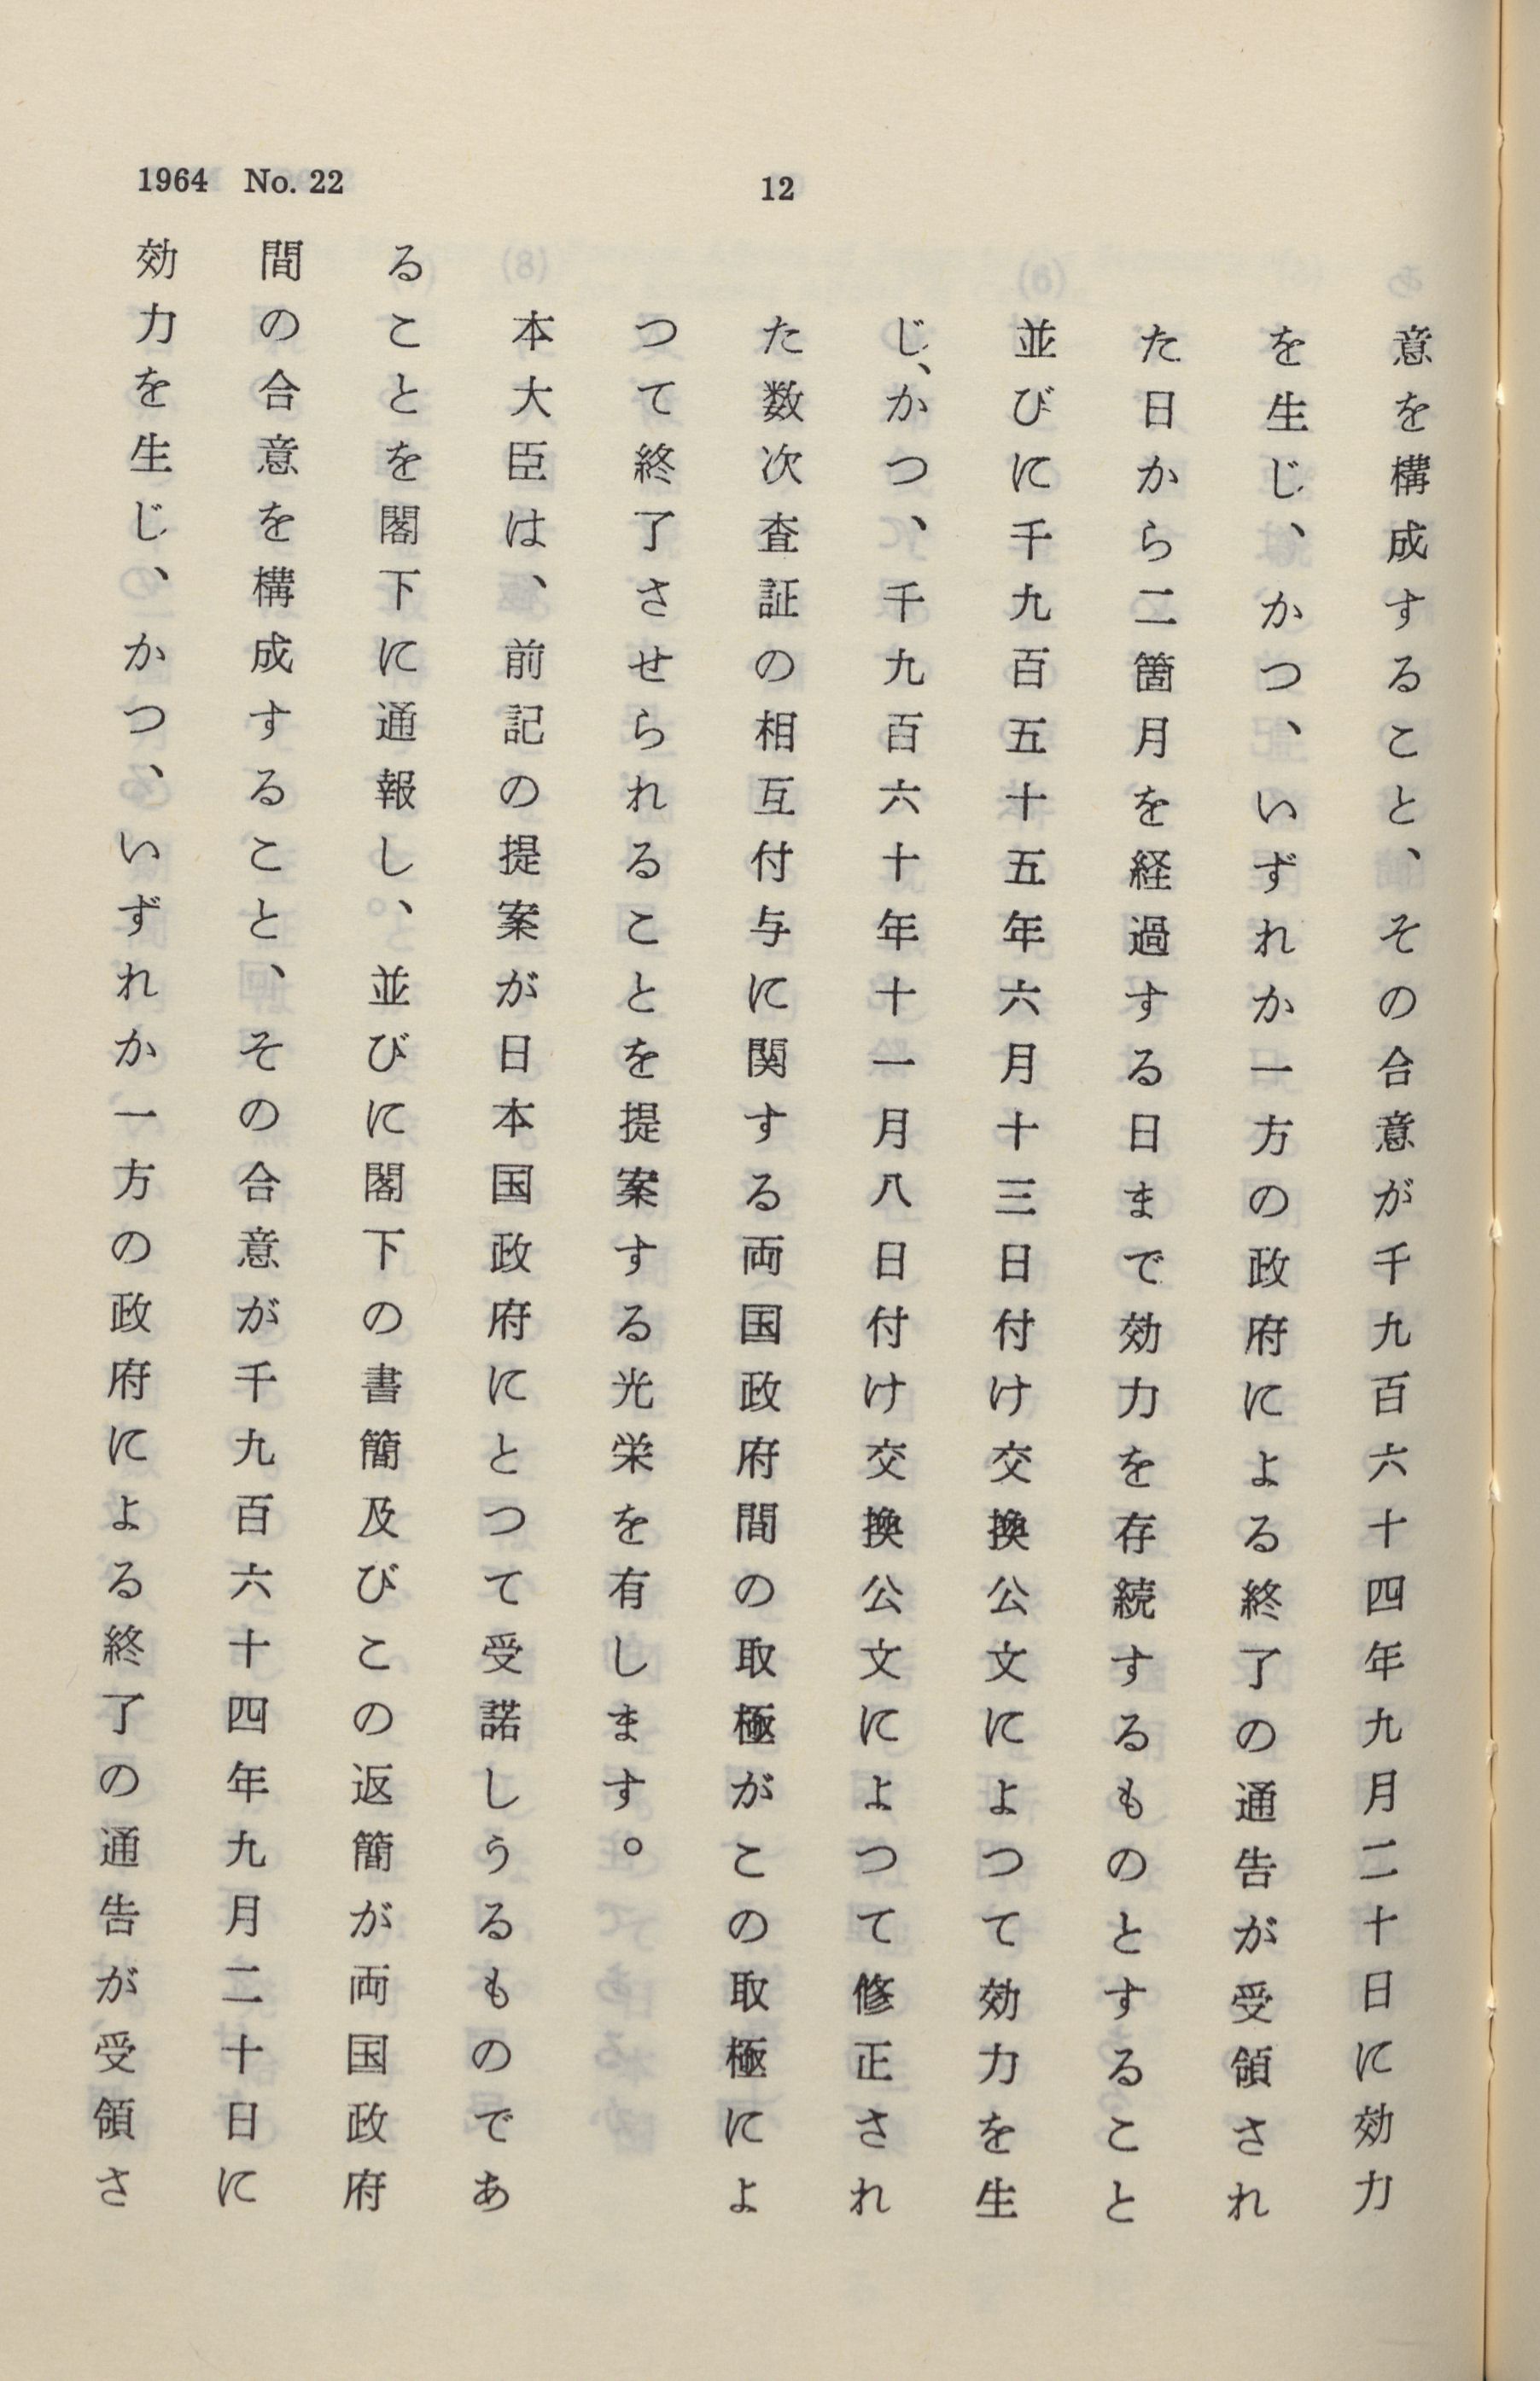 1964 No. 22
12
意を構成すること、その合意が千九百六十四年九月二十日に効力
を生じ、かつ、いずれか一方の政府による終了の通告が受領され
た日から二箇月を経過する日まで効力を存続するものとすること
並びに千九百五十五年六月十三日付け交換公文によつて効力を生
じ、かつ、千九百六十年十一月八日付け交換公文によつて修正され
た数次査証の相互付与に関する両国政府間の取極がこの取極によ
つて終了させられることを提案する光栄を有します。
本大臣は、前記の提案が日本国政府にとつて受諾しうるものであ
ることを閣下に通報し、並びに閣下の書簡及びこの返簡が両国政府
間の合意を構成すること、その合意が千九百六十四年九月二十日に
効力を生じ、かつ、いずれか一方の政府による終了の通告が受領さ